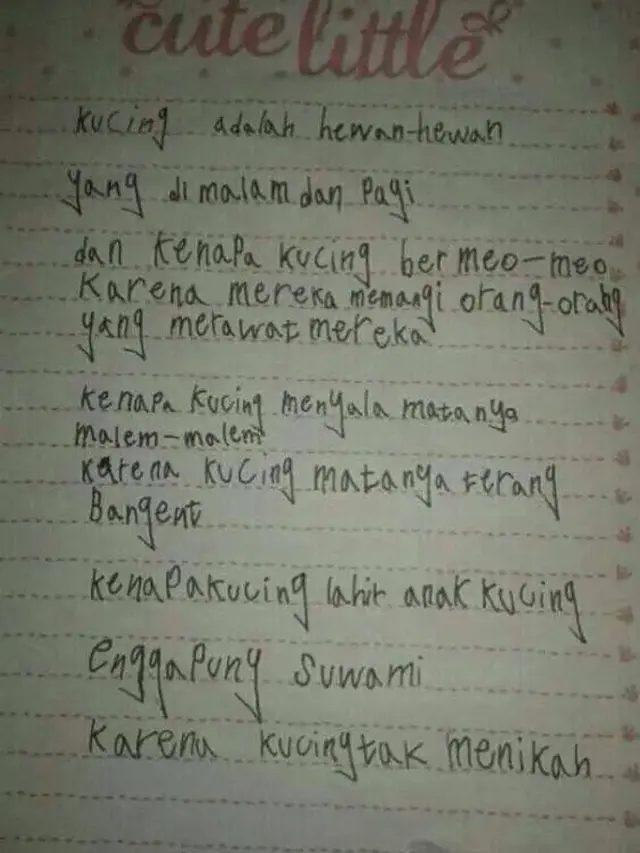 cute little
kucing adalah hewan-hewan
yang di malam dan pagi
dan kenapa kucing bermeo-meo
karena mereka memangi orang-orang
yang merawat mereka
kenapa kucing menyala matanya
malem-malem
karena kucing matanya terang
Bangent
kenapa kucing lahir anak kucing
enggapung suwami
karena kucing tak menikah